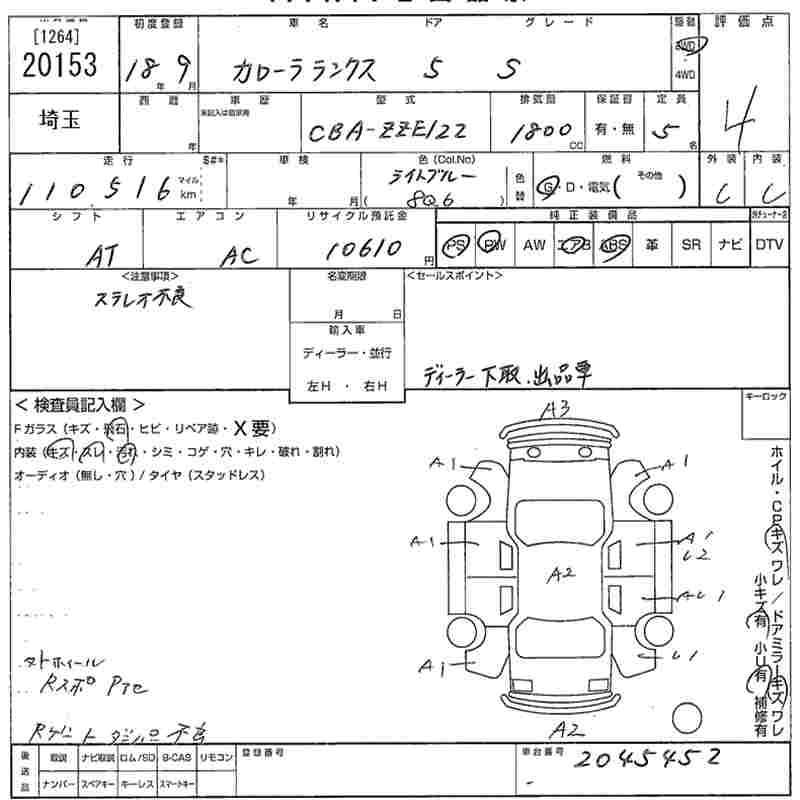 [1264]
20153
埼玉
初度登録
18年 9月
車名 ドア グレード
カローラランクス 5 S
駆動
2WD
4WD
評価点
4
西暦
年
車歴
未記入は自家用
型式
CBA-ZZE122
排気量
1800 CC
保証書
有・無
定員
5名
走行
110,516 マイル km
S#*
車検
年 月
色(Col.No)
ライトブルー
( 8Q6 )
色替
燃料
G・D・電気( その他 )
外装
C
内装
C
シフト
AT
エアコン
AC
リサイクル預託金
10610円
純正装備品
PS PW AW エアB ABS 革 SR ナビ
DTV
<注意事項>
ステレオ不良
名変期限
月 日
輸入車
ディーラー・並行
左H ・ 右H
<セールスポイント>
ディーラー下取出品車
キーロック
< 検査員記入欄 >
Fガラス (キズ・飛石・ヒビ・リペア跡・X要)
内装 (キズ・スレ・汚れ・シミ・コゲ・穴・キレ・破れ・割れ)
オーディオ (無し・穴) / タイヤ (スタッドレス)
A3
A1
A1
A1
A1
U2
A2
AU1
A1
U1
A2
ホイル・CPキズワレ/ドアミラーキズワレ
小キズ有 小U有 補修有
外ホイール
後送品
取説 ナビ取説 ロム/SD B-CAS リモコン
ナンバー スペアキー キーレス スマートキー
登録番号
車台番号
2045452
-